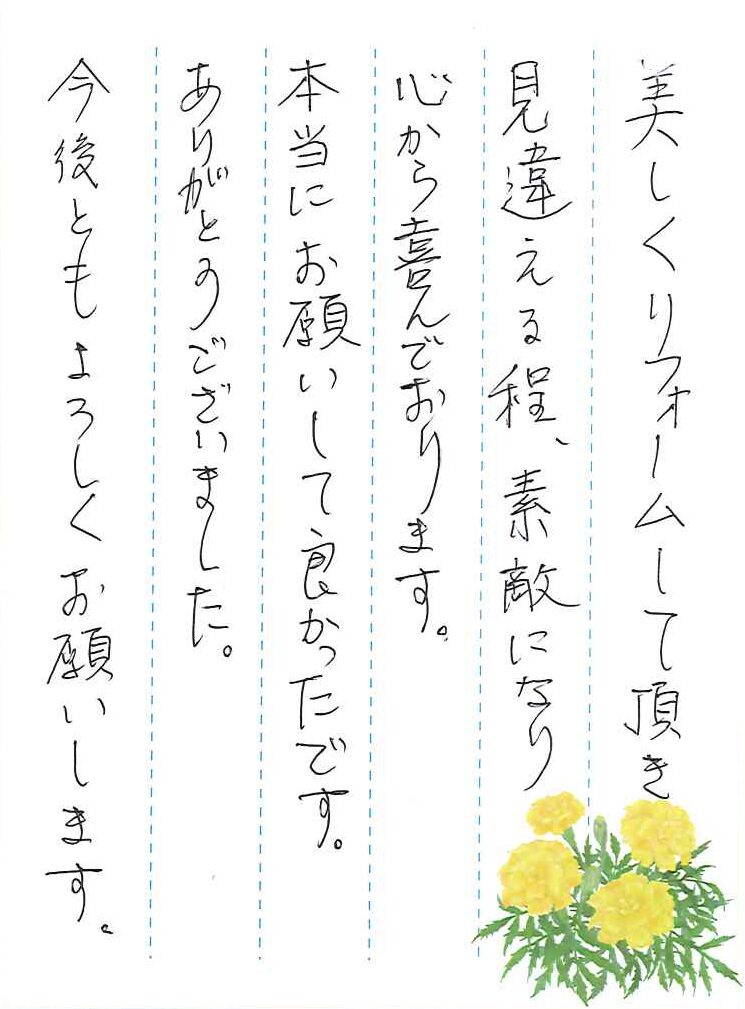 美しくリフォームして頂き
見違える程、素敵になり
心から喜んでおります。
本当にお願いして良かったです。
ありがとうございました。
今後ともよろしくお願いします。